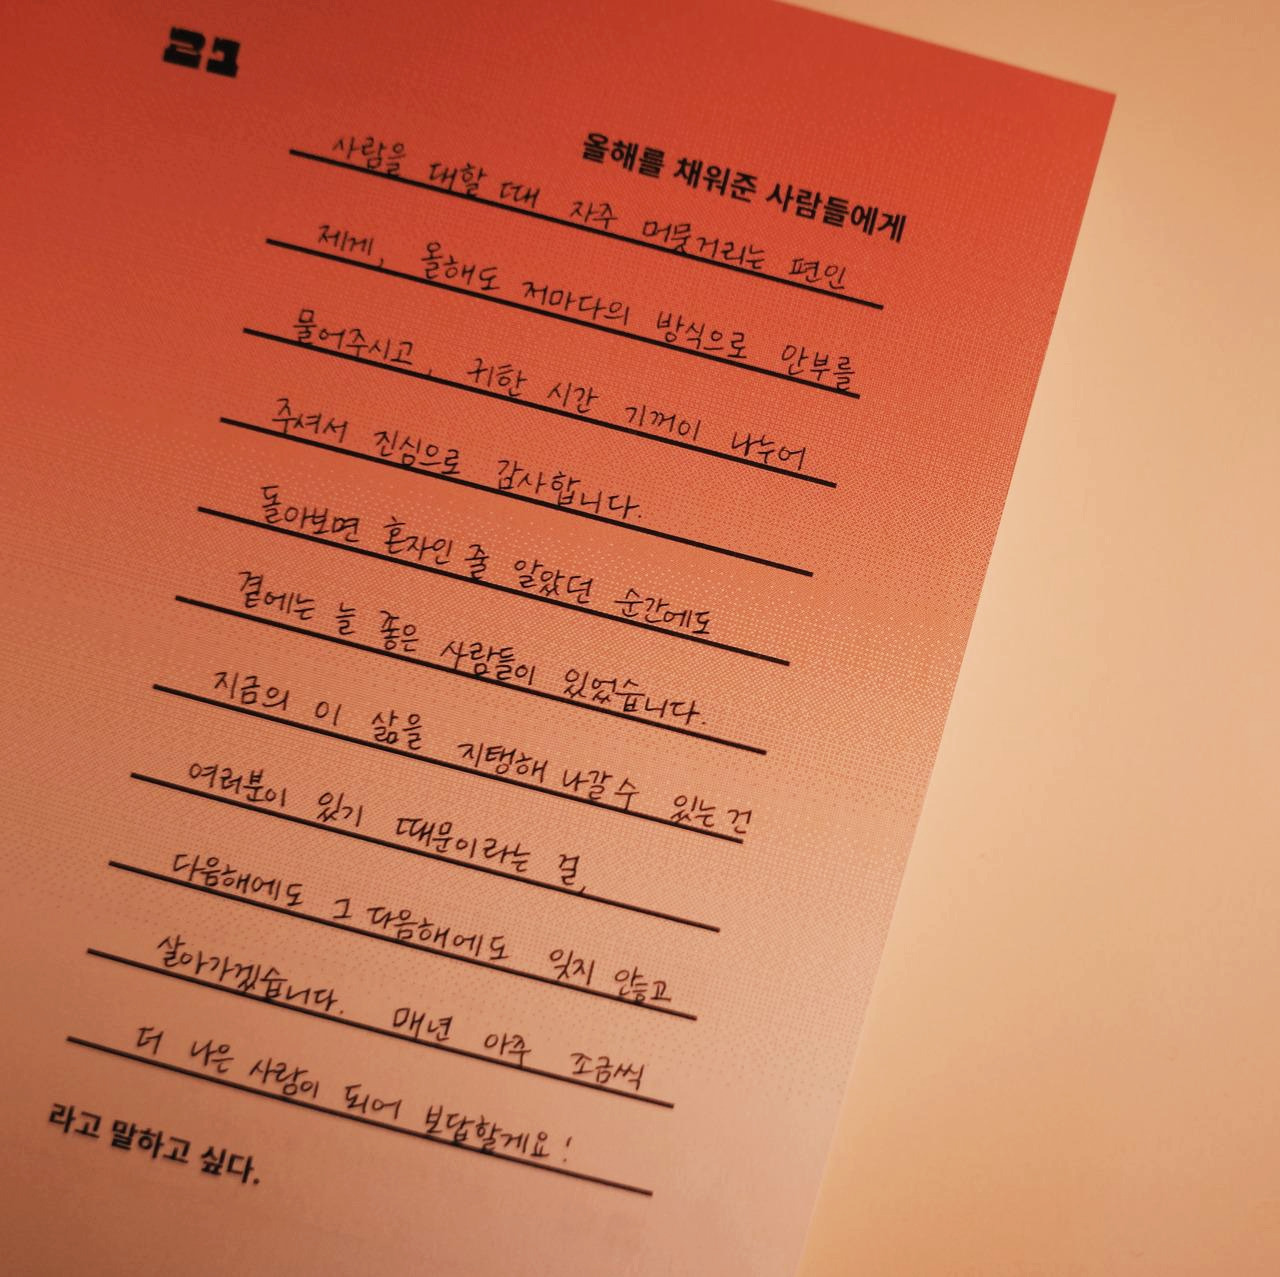 21
올해를 채워준 사람들에게
사람을 대할 때 자주 머뭇거리는 편인
제게, 올해도 저마다의 방식으로 안부를
물어주시고, 귀한 시간 기꺼이 나누어
주셔서 진심으로 감사합니다.
돌아보면 혼자인 줄 알았던 순간에도
곁에는 늘 좋은 사람들이 있었습니다.
지금의 이 삶을 지탱해 나갈 수 있는 건
여러분이 있기 때문이라는 걸,
다음해에도 그 다음해에도 잊지 않고
살아가겠습니다. 매년 아주 조금씩
더 나은 사람이 되어 보답할게요!
라고 말하고 싶다.